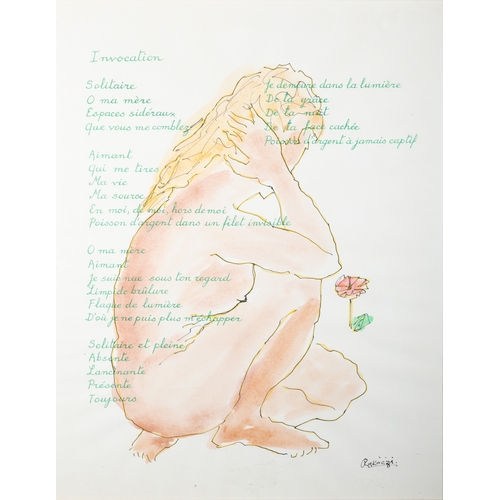 Invocation
Solitaire
O ma mère
Espaces sidéraux
Que vous me comblez
Aimant
Qui me tires
Ma vie
Ma source
En moi, de moi, hors de moi
Poisson d'argent dans un filet invisible
O ma mère
Aimant
Je suis nue sous ton regard
Limpide brûlure
Flaque de lumière
D'où je ne puis plus m'échapper
Solitaire et pleine
Absente
Lancinante
Présente
Toujours
Je demeure dans la lumière
De ta grâce
De ta nuit
De ta face cachée
Poisson d'argent à jamais captif